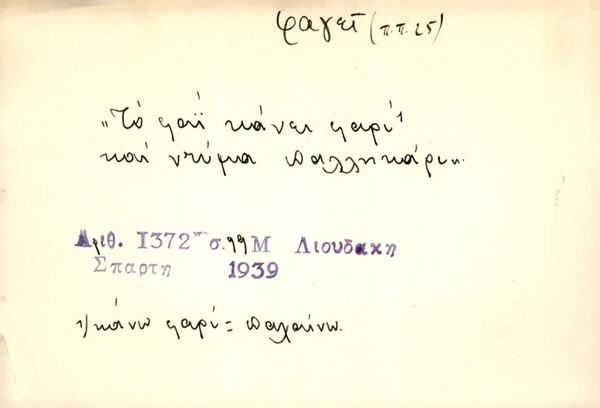 φαγεῖ (π.π. 25)
„Τό φαΐ κάνει φαρί¹
καί ντύμα παλληκάρι".
Αριθ. 1372 σ. 99 Μ Λιουδακη
Σπαρτη 1939
1/ κάνω φαρί = παχαίνω.